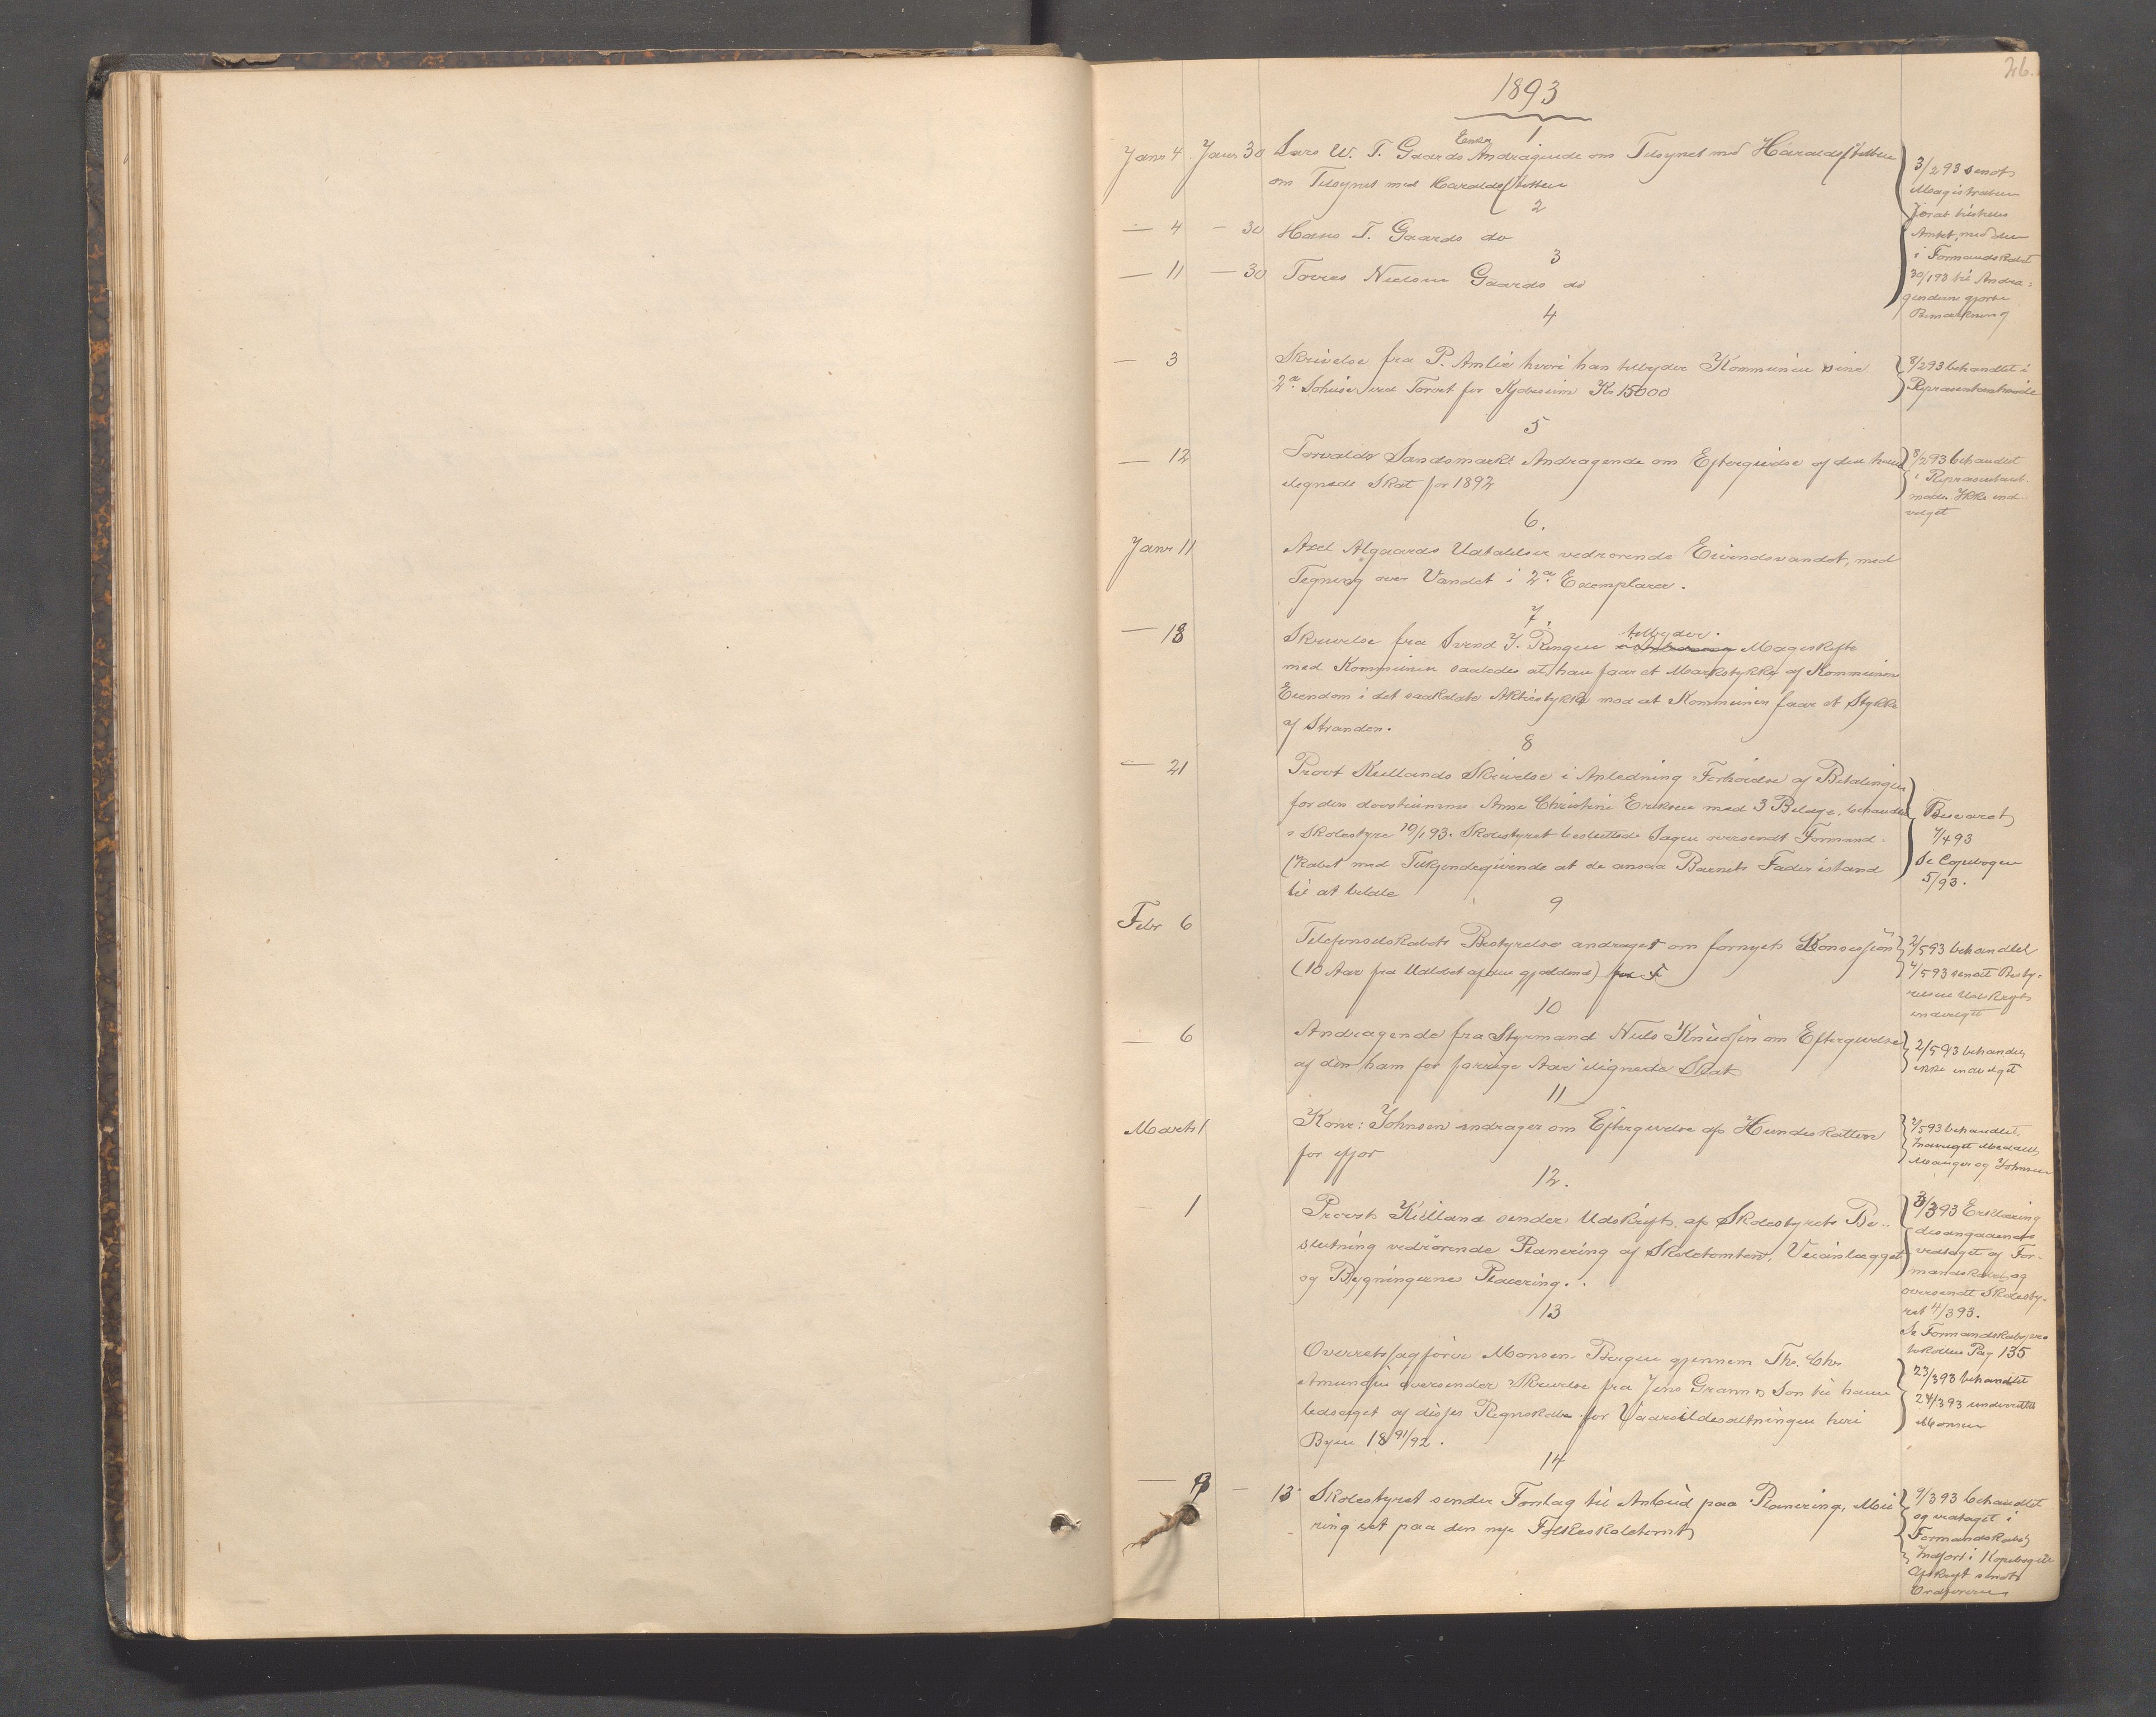 26.
1893
1
Janr 4 Janr 30 Lars W. T. Gaards Enke Andragende om Tilsynet med Haraldsstøtten
om Tilsynet med Haraldsstøtten
3/2 93 sendt
Magistraten
for at tilstilles
Amtet, med den
i Formandskabet
30/1 93 til Andra-
genderne gjorte
Bemærkning
2
— 4 — 30 Hans T. Gaards do
3
— 11 — 30 Tores Nielsen Gaards do
4
— 3 Skrivelse fra P. Amlie hvori han tilbyder Kommunen sine
2de Søhuse ved Torvet for Kjøbesum Kr 15000
8/2 93 behandlet i
5
— 12 Torvald Sandsmarks Andragende om Eftergivelse af den ham
ilignede Skat for 1892
8/2 93 behandlet
i Repræsentant-
møde. Ikke ind-
vilget
6.
Janr 11 Axel Algaards Udtalelser vedrørende Eivindsvandet, med
Tegning over Vandet i 2de Exemplarer.
7.
— 18 Skrivelse fra Svend J. Ringen tilbyder Mageskifte
med Kommunen saaledes at han faar et Markstykke af Kommunens
Eiendom i det saakaldte Aktiestykke mod at Kommunen faar et Stykke
af Stranden.
8
— 21 Provst Kiellands Skrivelse i Anledning Forhøielse af Betalingen
for den døvstumme Anne Christine Eriksen med 3 Bilage, behandlet
i Skolestyre 10/1 93. Skolestyret besluttede Sagen oversendt Formand-
skabet med Tilkjendegivende at de ansaa Barnets Fader istand
til at betale
Besvaret
7/4 93
Se Copibogen
5/93.
9
Febr 6 Telefonselskabets Bestyrelse andraget om fornyet Konsession
(10 Aar fra Udløbet af den gjældende)
2/5 93 behandlet
4/5 93 sendt Besty-
relsen Udskrift
indvilget
10
— 6 Andragende fra Styrmand Niels Knudsen om Eftergivelse
af den ham for forrige Aar ilignede Skat
2/5 93 behandlet
ikke indvilget
11
Marts 1 Konr: Johnsen andrager om Eftergivelse af Hundeskatten
for ifjor
2/5 93 behandlet.
Indvilget
Manger og Johnsen
12.
— 1 Provst Kielland sender Udskrift af Skolestyrets Be-
slutning vedrørende Planering af Skoletomten, Veianlægget
og Bygningerne Placering.
3/3 93 Erklæring
desangaaende
vedtaget af For-
mandskabet og
oversendt Skolesty-
ret 4/3 93.
Se Formandskabspro
tokollen Pag 135
13
Overretssagfører Monsen Bergen gjennem Th. Chr.
Amundsen oversender Skrivelse fra Jens Gran & Søn til ham
ledsaget af disses Regnskaber for Vaarsildesaltningen heri
Byen 18 91/92.
23/3 93 behandlet
24/3 93 underrettet
Monsen
14
— 9 — 13 Skolestyret sender Forslag til Anbud paa Planering, Mu
ring etc paa den nye Folkeskoletomt
9/3 93 behandlet
og vedtaget i
Formandskabet
Indført i Kopibogen
Afskrift sendt
Ordføreren